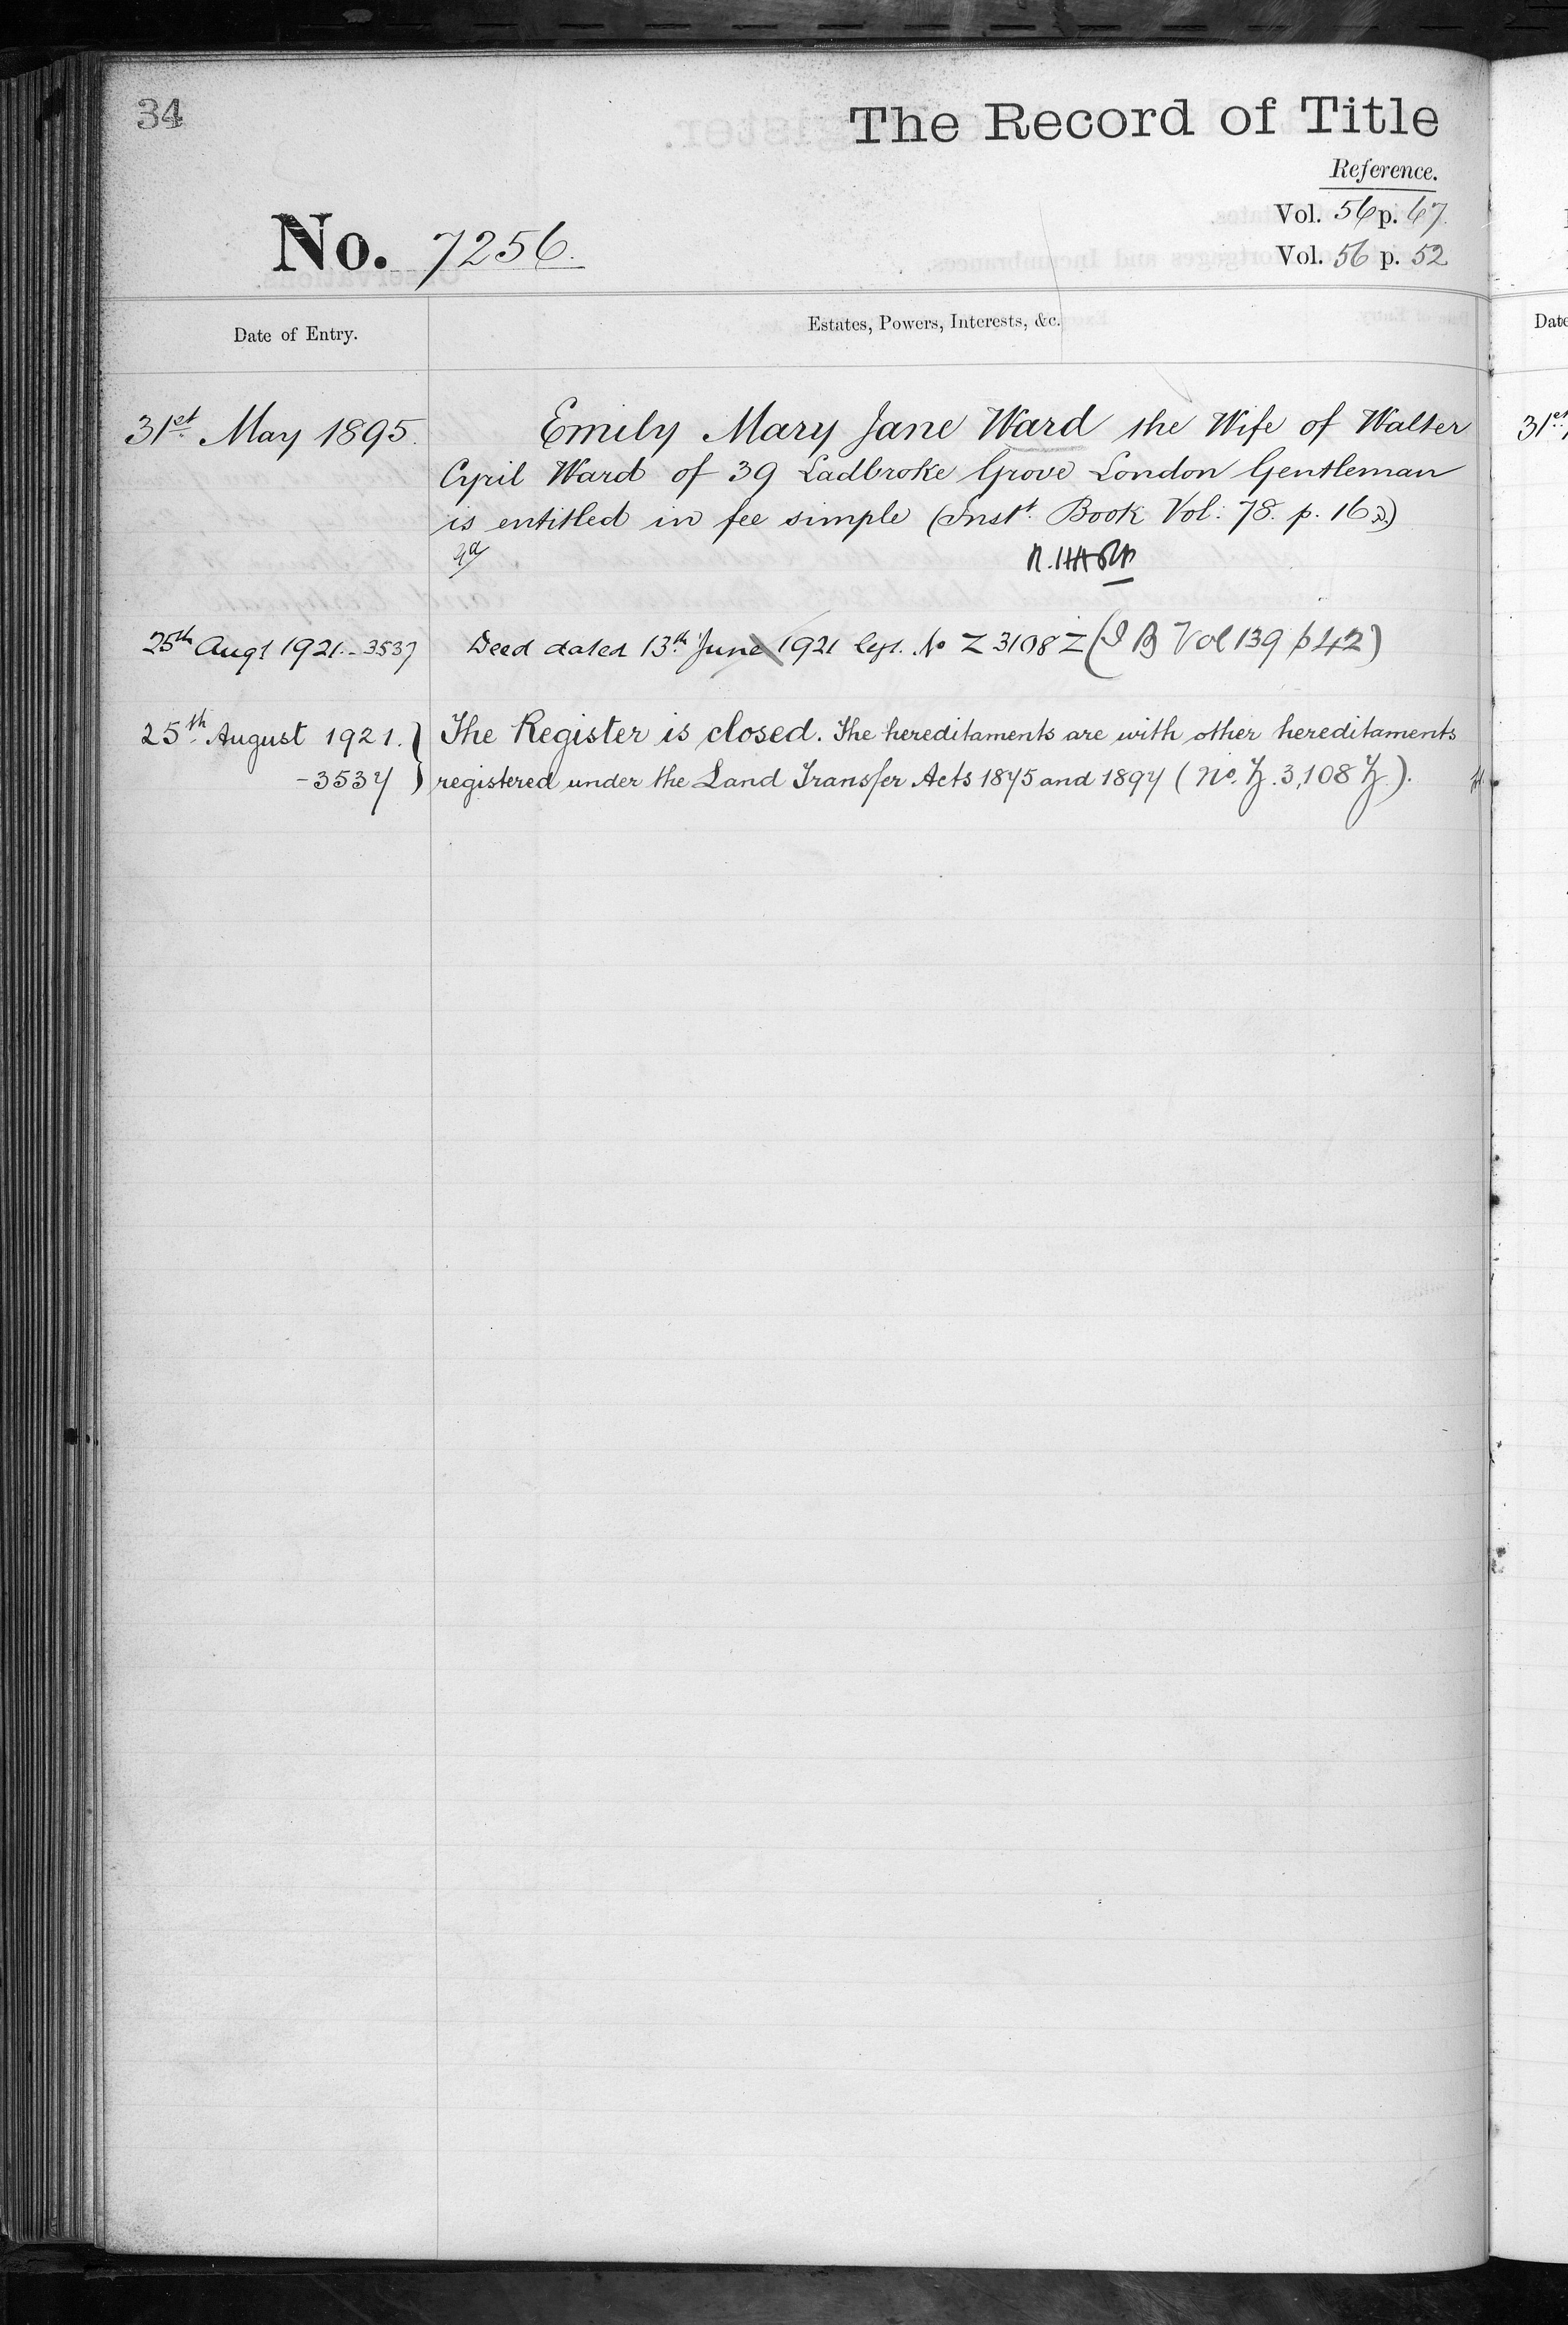 34
The Record of Title
Reference.
Vol. 56 p. 67.
No. 7256.
Vol. 56 p. 52
Date of Entry.
Estates, Powers, Interests, &c.
31st May 1895.
Emily Mary Jane Ward the Wife of Walter
Cyril Ward of 39 Ladbroke Grove London Gentleman
is entitled in fee simple (Inst. Book Vol: 78. p. 162)
25th Augt 1921. - 3537
Deed dated 13th June 1921 No Z 3108 Z (I B Vol 139 p 42)
25th August 1921. }
The Register is closed. The hereditaments are with other hereditaments
- 3537 }
registered under the Land Transfer Acts 1875 and 1897 (No. Z. 3,108 Z.).
Date
31st